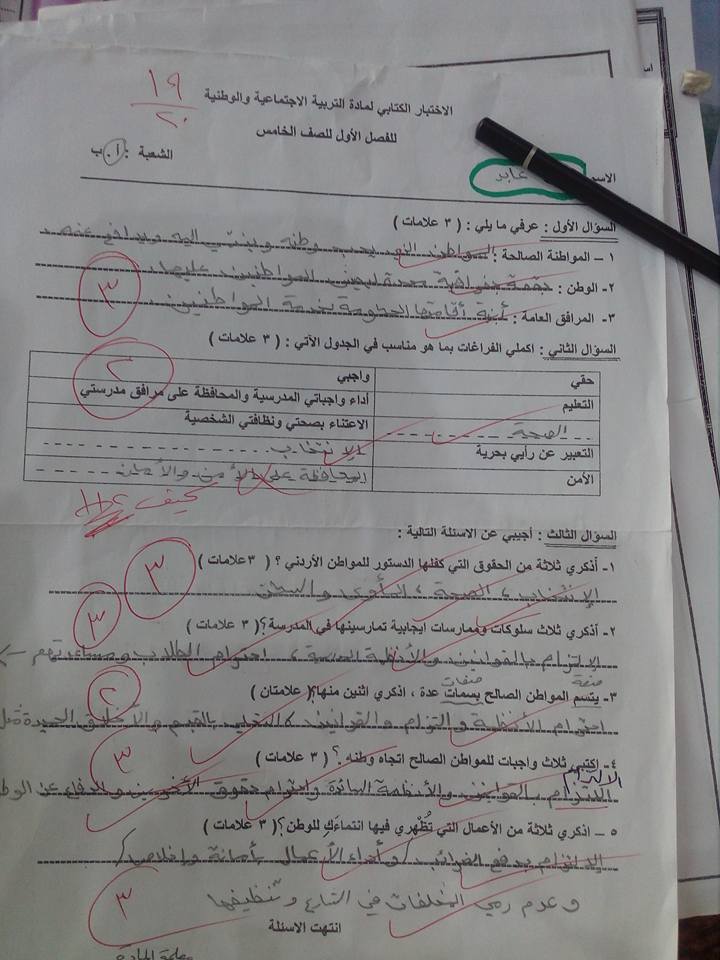 ١٩
٢٠
الاختبار الكتابي لمادة التربية الاجتماعية والوطنية
للفصل الأول للصف الخامس
الاسم عابد الشعبة : أ . ب
السؤال الأول : عرفي ما يلي : ( ٣ علامات )
١ – المواطنة الصالحة : المواطن الذي يحب وطنه وينتمي اليه ويدافع عنه
٢- الوطن : بقعة جغرافية محددة يعيش المواطنين عليها
٣- المرافق العامة : أبنية أقامتها الحكومة بخدمة المواطنين
٣
السؤال الثاني : اكملي الفراغات بما هو مناسب في الجدول الآتي : ( ٣ علامات )
٢
حقي واجبي
التعليم أداء واجباتي المدرسية والمحافظة على مرافق مدرستي
الصحة الاعتناء بصحتي ونظافتي الشخصية
التعبير عن رأيي بحرية الانتخاب
الأمن المحافظة على الأمن والأمان
كيف
السؤال الثالث : أجيبي عن الاسئلة التالية :
١- أذكري ثلاثة من الحقوق التي كفلها الدستور للمواطن الأردني ؟ ( ٣ علامات )
٣
الانتخاب ، الصحة ، المأوى والسكن
٢- أذكري ثلاث سلوكات وممارسات ايجابية تمارسينها في المدرسة؟( ٣ علامات )
٣
الالتزام بالقوانين والأنظمة المدرسية ، احترام الطلاب ومساعدتهم
صفة صفات
٣- يتسم المواطن الصالح بسمات عدة ، اذكري اثنين منها؟( علامتان )
٢
احترام الأنظمة والتزام والقوانين ، التحلي بالقيم والأخلاق الحميدة مثل
٤- اكتبي ثلاث واجبات للمواطن الصالح اتجاه وطنه . ؟ ( ٣ علامات )
٣
الالتزام
التزام بالقوانين والأنظمة السائدة واحترام حقوق الآخرين والدفاع عن الوطن
٥ – اذكري ثلاثة من الأعمال التي تُظهري فيها انتماءَكِ للوطن؟( ٣ علامات )
الالتزام بدفع الضرائب / وأداء الأعمال بأمانة وإخلاص /
وعدم رمي المخلفات في الشارع وتنظيفها
٣
انتهت الاسئلة
معلمة المادة